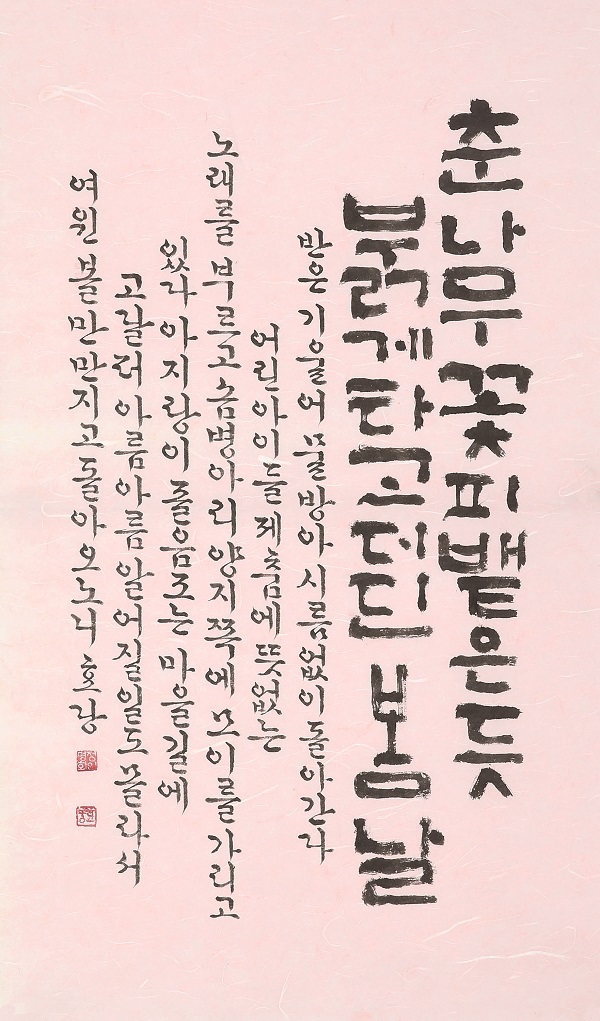 춘나무 꽃 피뱉은 듯
붉게 타고 더딘 봄날
반은 기울어 물방아 시름없이 돌아간다
어린아이들 제춤에 뜻없는
노래를 부르고 솜병아리 양지쪽에 모이를 가리고
있다 아지랑이 졸음조는 마을길에
고달퍼 아름아름 알어질 일도 몰라서
여윈 볼만 만지고 돌아오노니 효랑